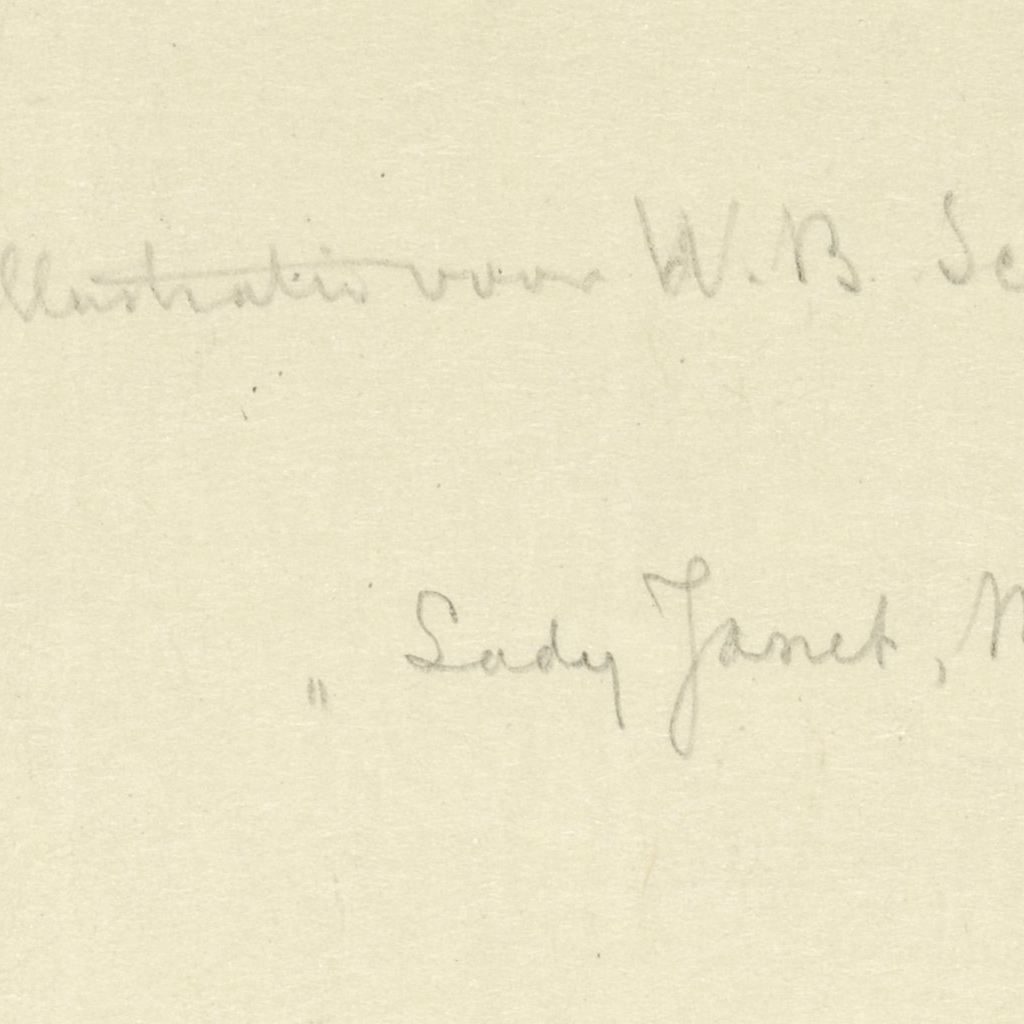 llustratie voor W. B. Sc
„ Lady Janet, M